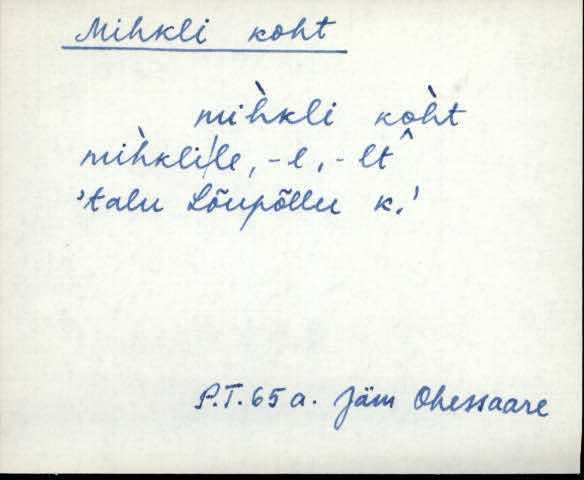 Mihkli koht
mìhkli kòht
mìhkli/le, -l, -lt
'talu Lõupõllu k.'
P.T. 65 a. Jäm Ohessaare